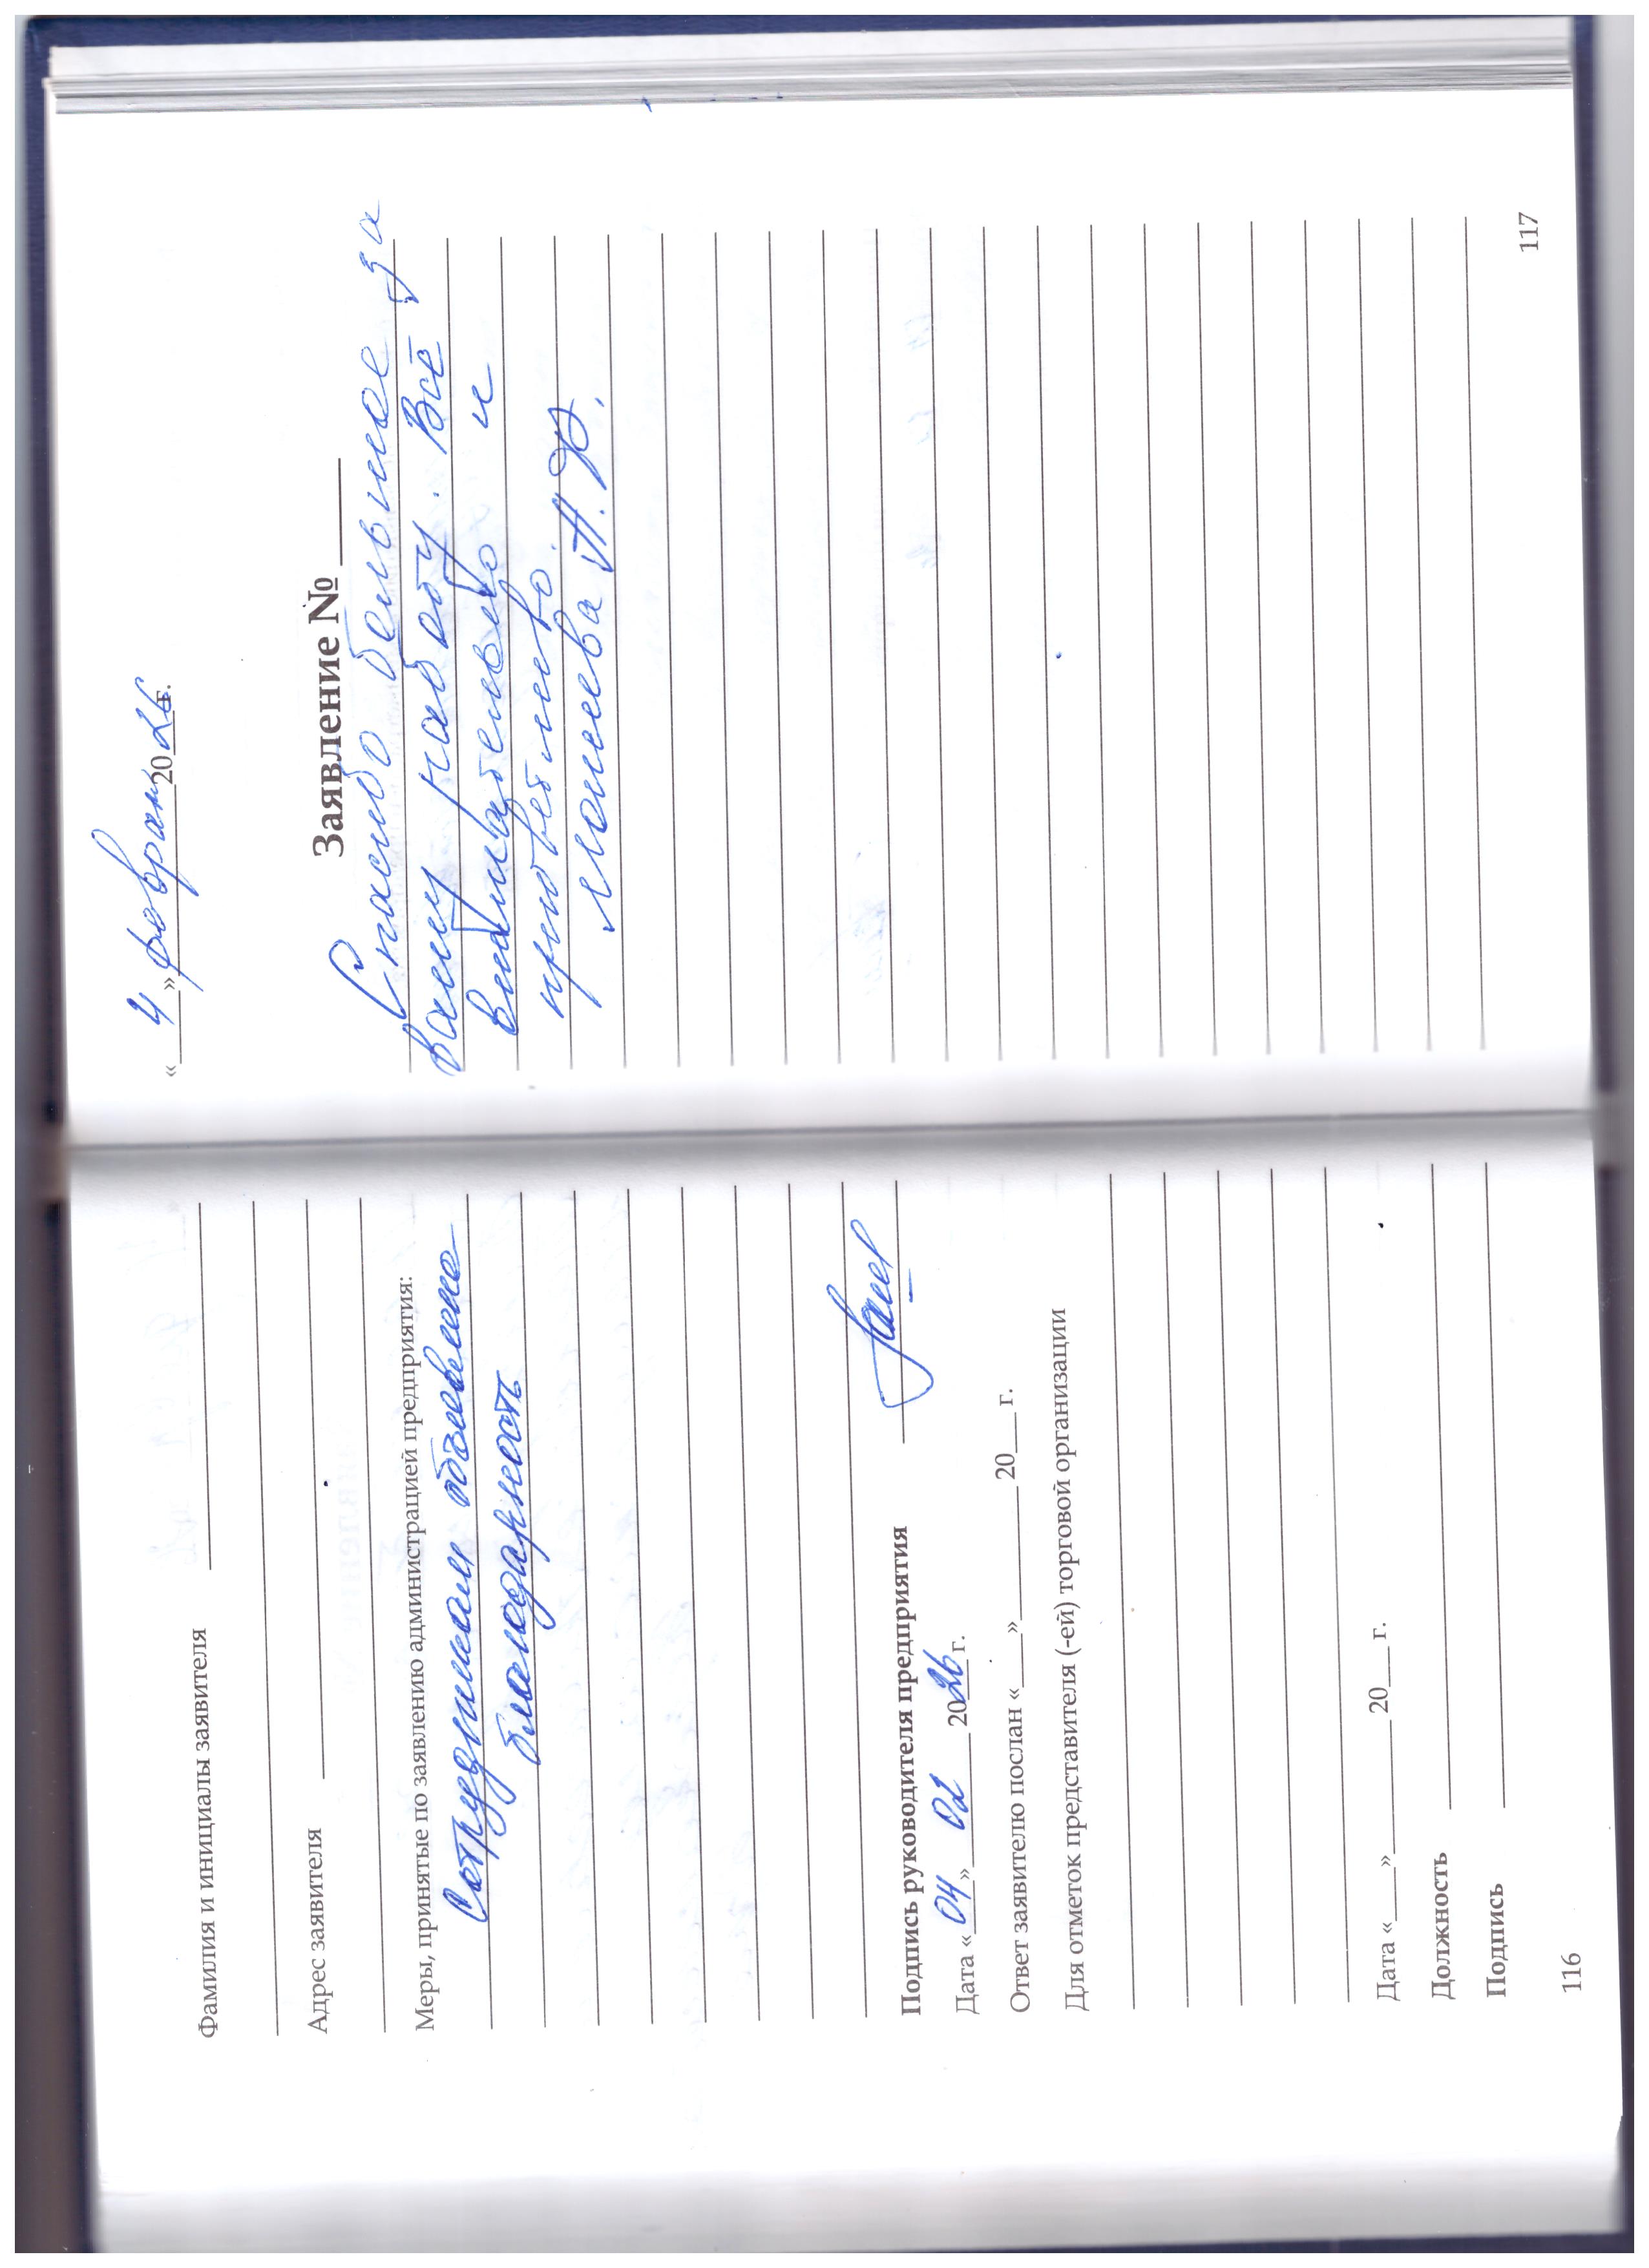 Фамилия и инициалы заявителя
Адрес заявителя
Меры, принятые по заявлению администрацией предприятия:
Сотрудникам объявлена
благодарность
Подпись руководителя предприятия
Дата «04» 02 2026 г.
Ответ заявителю послан «___»________20___г.
Для отметок представителя (-ей) торговой организации
Дата «___»________20___г.
Должность
Подпись
116
«4» февраля 2026 г.
Заявление №
Спасибо большое за
вашу работу. Всё
внимательно и
приветливо.
А. Ф.
117